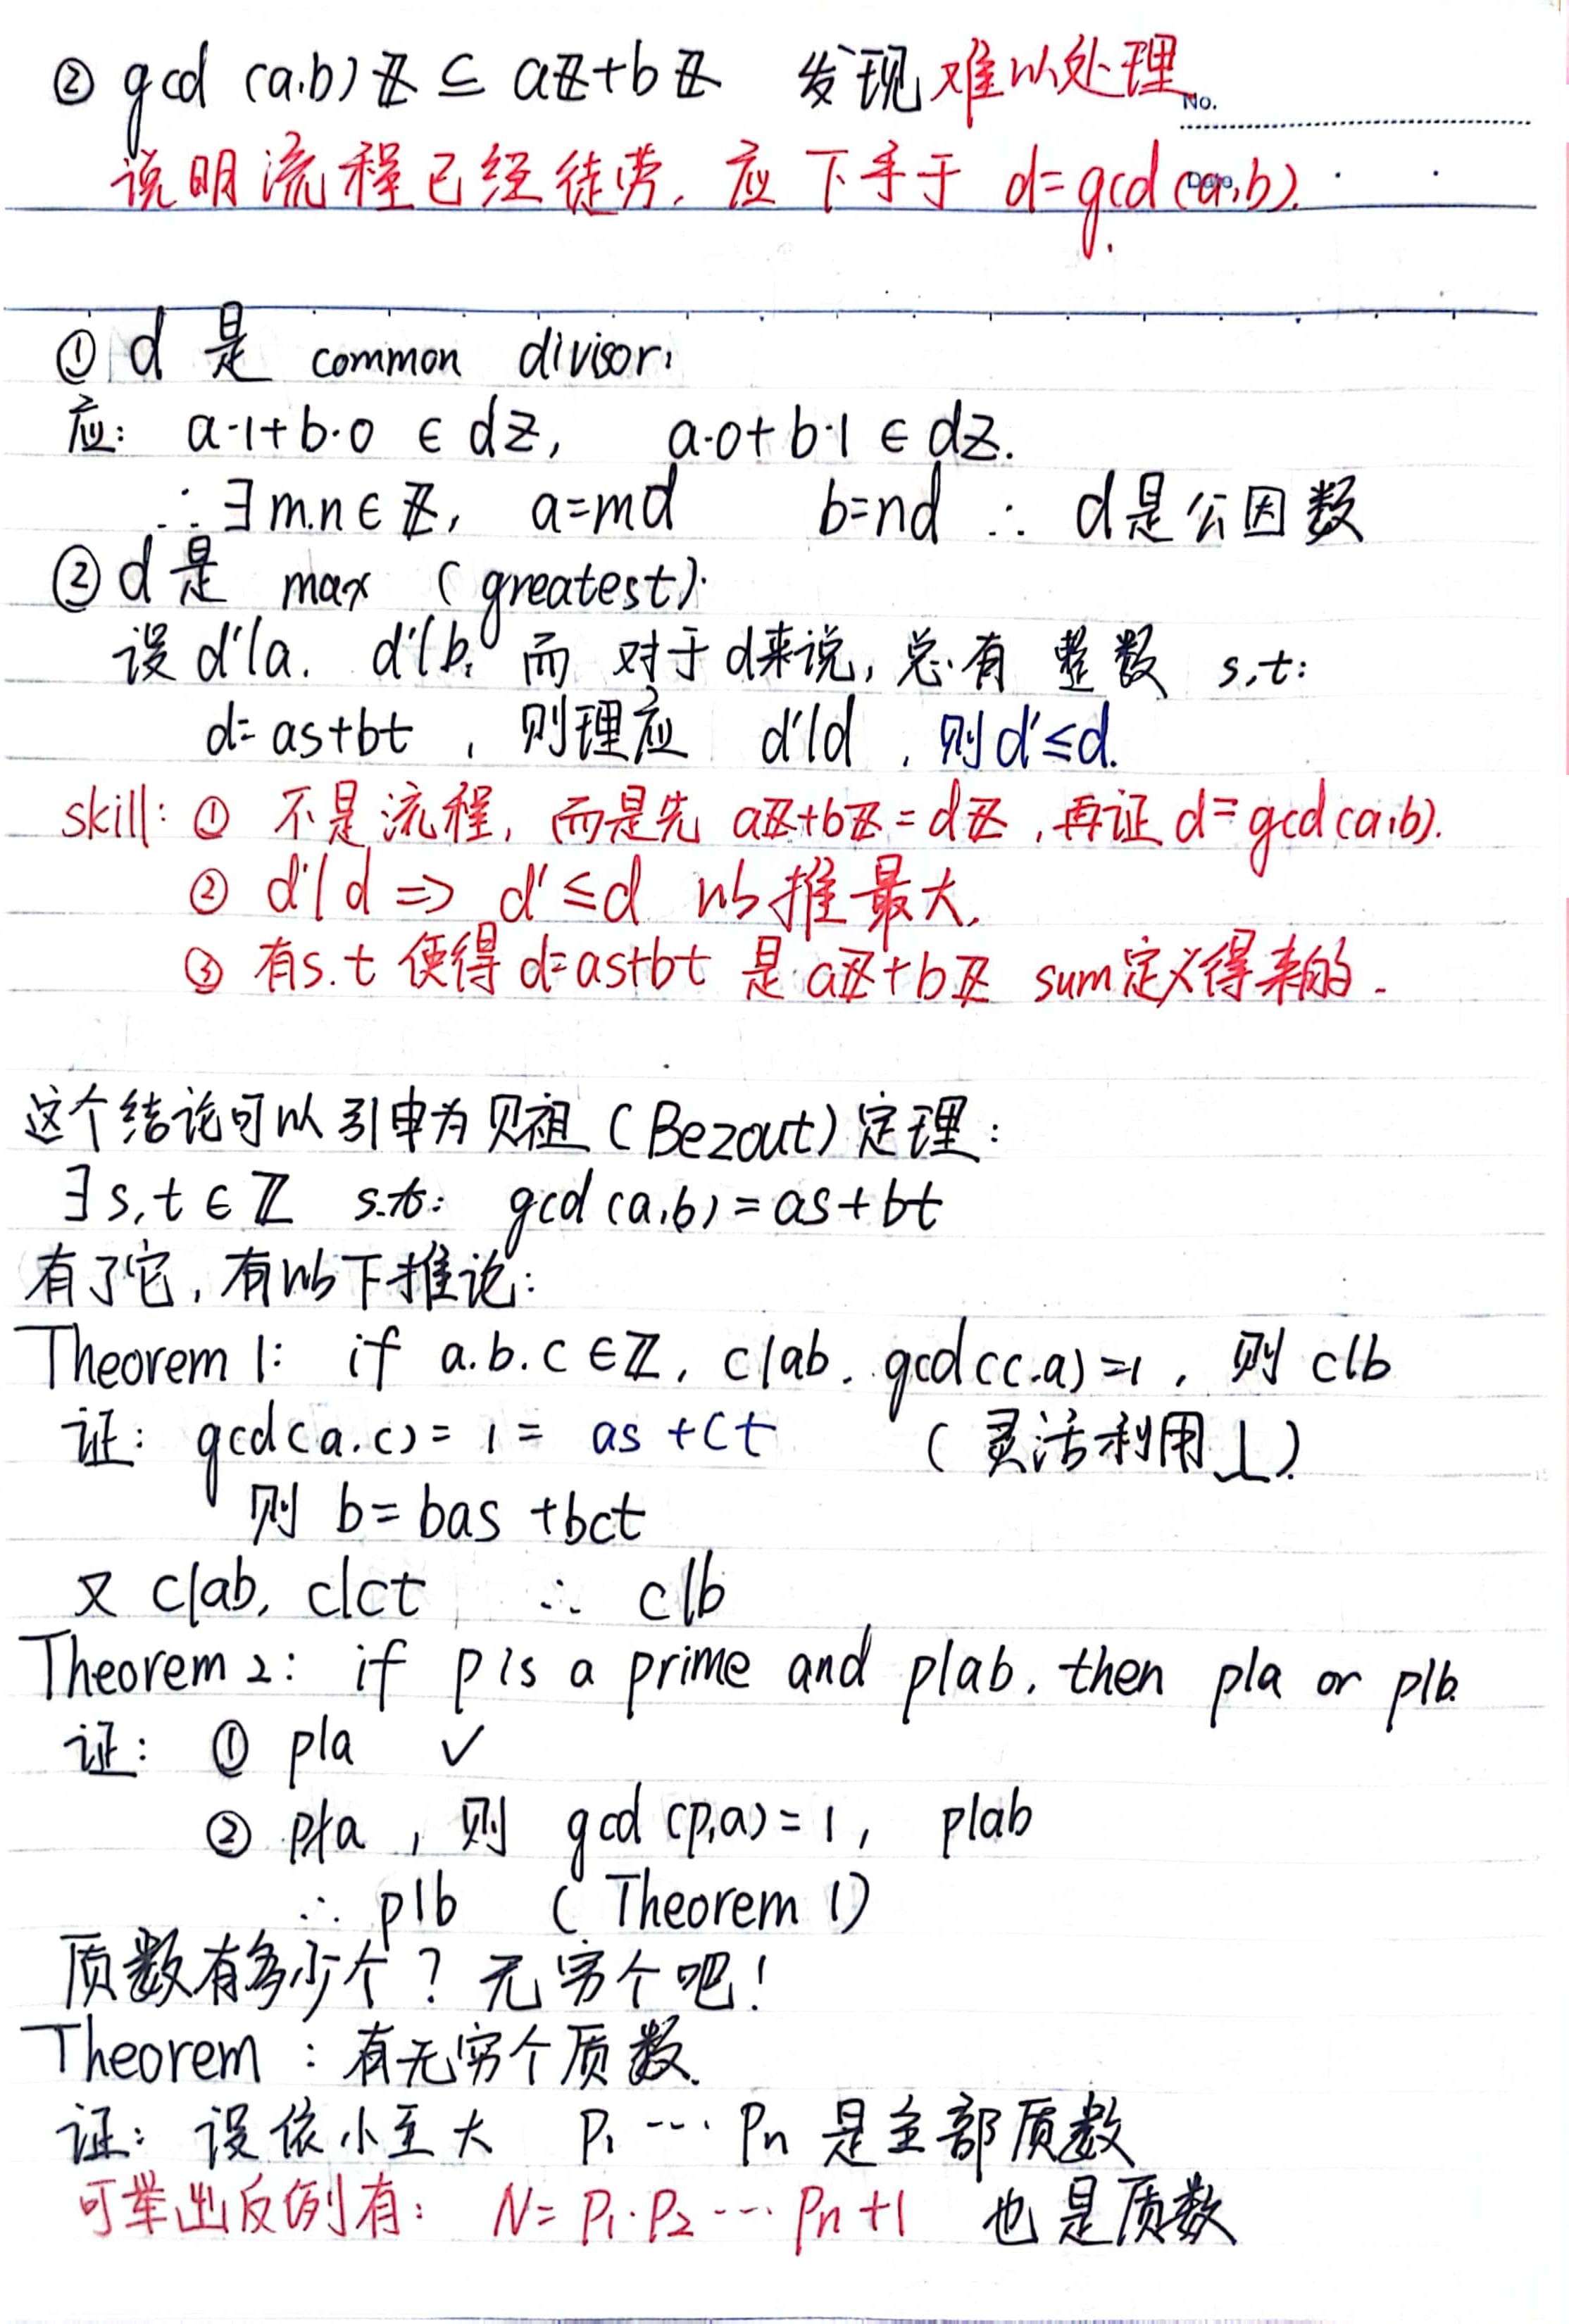 ② gcd (a,b)ℤ ⊆ aℤ+bℤ 发现难以处理
No.
说明流程已经徒劳, 应下手于 d=gcd(a,b).
Date
① d 是 common divisor:
应: a·1+b·0 ∈ dℤ, a·0+b·1 ∈ dℤ.
∴ ∃m,n∈ℤ, a=md b=nd ∴ d是公因数
② d是 max (greatest):
设 d'|a. d'|b, 而 对于d来说, 总有 整数 s,t:
d=as+bt , 则理应 d'|d , 则d'≤d.
skill: ① 不是流程, 而是先 aℤ+bℤ=dℤ, 再证 d=gcd(a,b).
② d'|d ⇒ d'≤d 以推最大.
③ 有s.t 使得 d=as+bt 是 aℤ+bℤ sum定义得来的.
这个结论可以引申为贝祖(Bezout)定理:
∃s,t∈ℤ s.t: gcd(a,b)=as+bt
有了它, 有以下推论:
Theorem 1: if a.b.c∈ℤ, c|ab. gcd(c.a)=1, 则 c|b
证: gcd(a.c)=1= as+ct (灵活利用1)
则 b=bas+bct
又 c|ab, c|ct ∴ c|b
Theorem 2: if p is a prime and p|ab, then p|a or p|b.
证: ① p|a ✓
② p∤a , 则 gcd(p,a)=1, p|ab
∴ p|b (Theorem 1)
质数有多少个? 无穷个吧!
Theorem : 有无穷个质数.
证: 设依小至大 p₁ ··· pₙ 是全部质数
可举出反例有: N=p₁·p₂···pₙ+1 也是质数